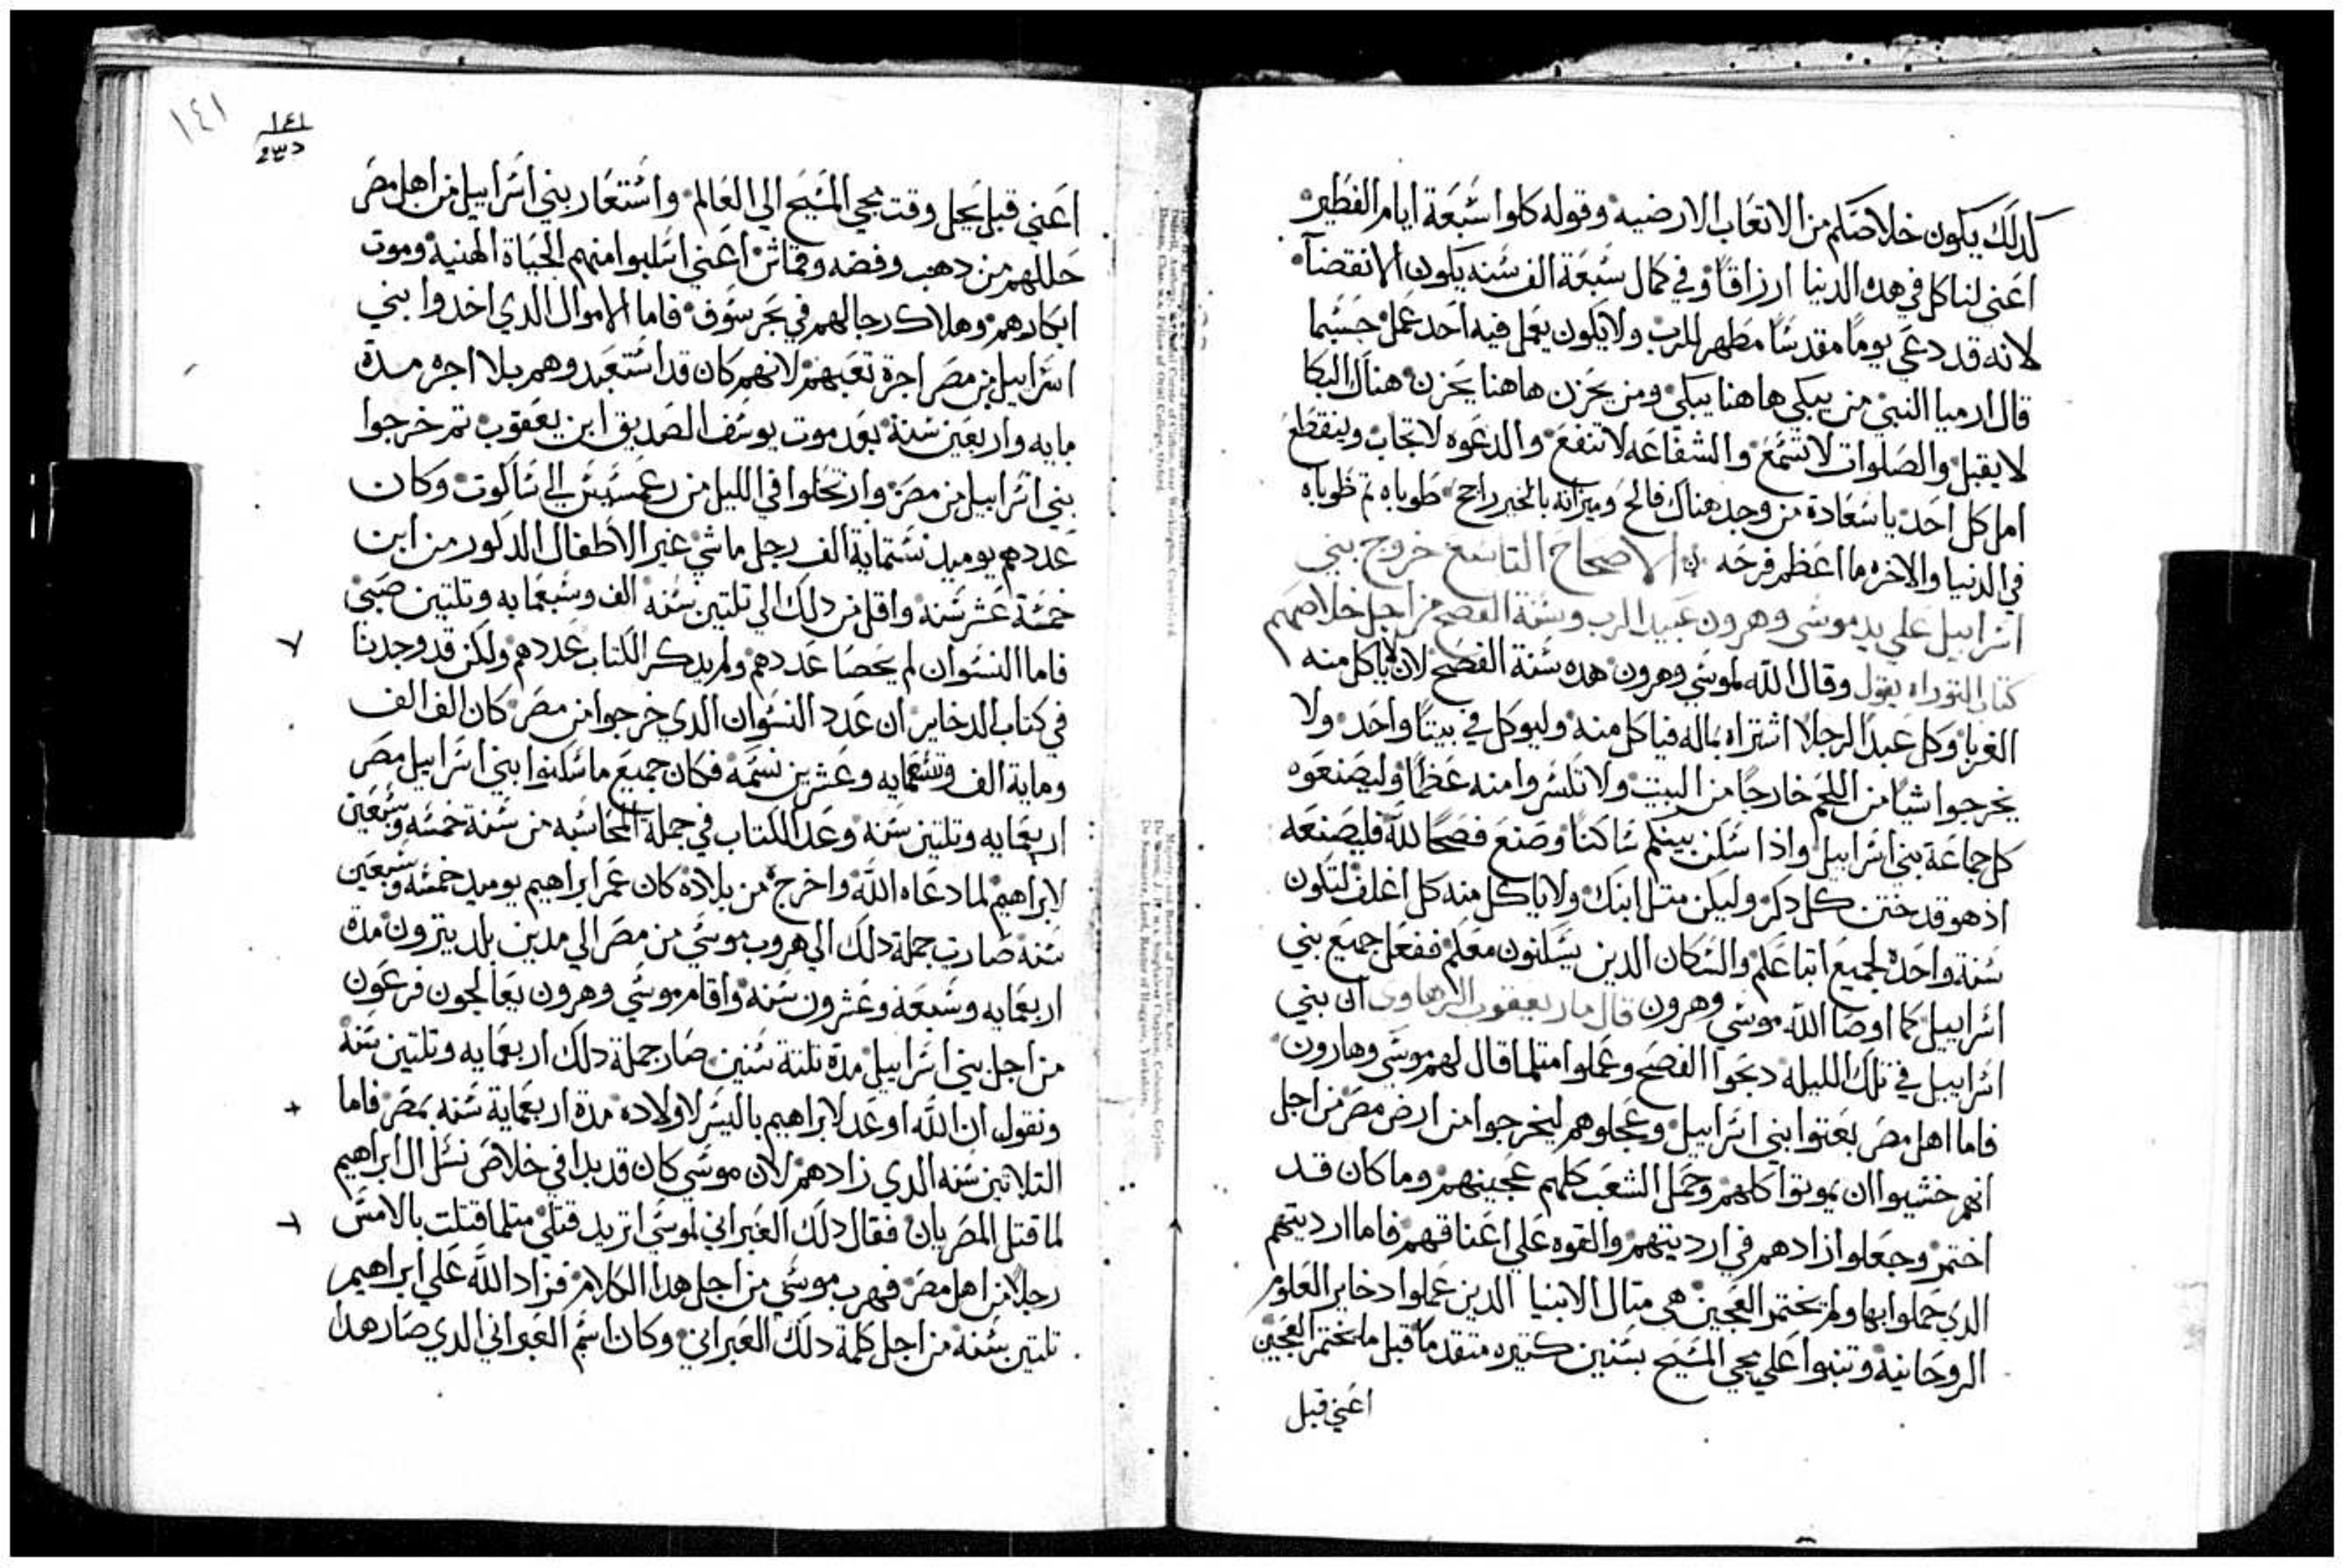 كدلك يكون خلاصكم من الاتعاب الارضيه وقوله كلوا سبعة ايام الفطير
اعني لناكل في هده الدنيا ارزاقا وفي كمال سبعة الف سنه يكون الانقضاء
لانه قد دعي يوما مقدسا مطهر للرب ولا يكون يعمل فيه احد عمل جسيما
قال ارميا النبي من يبكي هاهنا يبكي ومن يحزن هاهنا يحزن هناك البكا
لا يقبل والصلوات لا تسمع والشفاعه لا تنفع والدعوه لا تجاب وينقطع
امل كل احد يا سعادة من وجد هناك فالح وميزانه بالخير راجح طوباه تم طوباه
في الدنيا والاخره ما اعظم فرحه الاصحاح التاسع خروج بني
اسراييل علي يد موسي وهرون عبيد الرب وسنة الفصح من اجل خلاصهم
كتاب التوراه يقول وقال الله لموسي وهرون هده سنة الفصح لان لا ياكل منه
الغربا وكل عبدا لرجلا اشتراه بماله فياكل منه وليوكل في بيتا واحد ولا
يخرجوا شيا من اللحم خارجا من البيت ولا تكسروا منه عظما وليصنعوه
كل جماعة بني اسراييل واذا سكن بينكم ساكنا وصنع فصحا لله فليصنعه
اذ هو قد ختن كل دكر وليكن متل ابنك ولا ياكل منه كل اغلف لتكون
سنة واحدة لجميع اتباعكم والسكان الدين يسكنون معكم ففعل جميع بني
اسراييل كما اوصا الله موسي وهرون قال مار يعقوب الرهاوي ان بني
اسراييل في تلك الليله دبحوا الفصح وعملوا متلما قال لهم موسي وهارون
فاما اهل مصر بعتوا بني اسراييل وعجلوهم ليخرجوا من ارض مصر من اجل
انهم خشيوا ان يموتوا كلهم وحمل الشعب كلهم عجينهم وما كان قد
اختمر وجعلوا ازادهم في ارديتهم والقوه علي اعناقهم فاما ارديتهم
الدي حملوا بها ولم يختمر العجين هي متال الانبيا الدين عملوا دخاير العلوم
الروحانيه وتنبوا علي مجي المسيح بسنين كتيره متقدما قبل ما يختمر العجين
اعني قبل
١٤١
١٤١
اعني قبل يحل وقت مجي المسيح الي العالم واستعار بني اسراييل من اهل مصر
حللهم من دهب وفضه وقماش اعني اسلبوا منهم الحياة الهنيه وموت
ابكارهم وهلاك رجالهم في بحر سوف فاما الاموال الدي اخدوا بني
اسراييل من مصر اجرة تعبهم لانهم كان قد استعبدوهم بلا اجره مدة
مايه واربعين سنة بعد موت يوسف الصديق ابن يعقوب تم خرجوا
بني اسراييل من مصر وارتحلوا في الليل من رعمسيس الي ساكوت وكان
عددهم يوميد ستماية الف رجل ماشي غير الاطفال الدكور من ابن
خمسة عشر سنه واقل من دلك الي تلتين سنه الف وسبعمايه وتلتين صبي
فاما النسوان لم يحصا عددهم ولم يدكر الكتاب عددهم ولكن قد وجدنا
في كتاب الدخاير ان عدد النسوان الدي خرجوا من مصر كان الف الف
وماية الف وتسعمايه وعشرين نسمه فكان جميع ما سكنوا بني اسراييل مصر
اربعمايه وتلتين سنه وعد الكتاب في جملة المحاسبه من سنة خمسه وسبعين
لابراهيم لما دعاه الله واخرج من بلاده كان عمر ابراهيم يوميد خمسه وسبعين
سنه صارت جملة دلك الي هروب موسي من مصر الي مدين بلد يترون مدة
اربعمايه وسبعة وعشرون سنه واقام موسي وهرون يعالجون فرعون
من اجل بني اسراييل مدة تلتة سنين صار جملة دلك اربعمايه وتلتين سنة
ونقول ان الله اوعد لابراهيم باليسر لاولاده مدة اربعماية سنه بمصر فاما
التلاتين سنه الدي زادهم لان موسي كان قد بدا في خلاص نسل ال ابراهيم
لما قتل المصريان فقال دلك العبراني لموسي اتريد قتلي متلما قتلت بالامس
رجلا من اهل مصر فهرب موسي من اجل هدا الكلام فزاد الله علي ابراهيم
تلتين سنة من اجل كلمة دلك العبراني وكان اسم العبراني الدي صار هدا